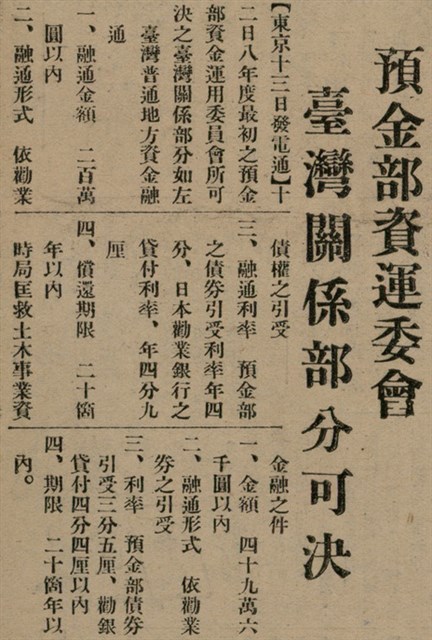 預金部資運委會
臺灣關係部分可決
【東京十三日發電通】十
二日八年度最初之預金
部資金運用委員會所可
決之臺灣關係部分如左
臺灣普通地方資金融
通
一、融通金額　二百萬
圓以內
二、融通形式　依勸業
債權之引受
三、融通利率　預金部
之債券引受利率年四
分、日本勸業銀行之
貸付利率、年四分九
厘
四、償還期限　二十箇
年以內
時局匡救土木事業資
金融之件
一、金額　四十九萬六
千圓以內
二、融通形式　依勸業
券之引受
三、利率　預金部債券
引受三分五厘、勸銀
貸付四分四厘以內
四、期限　二十箇年以
內。